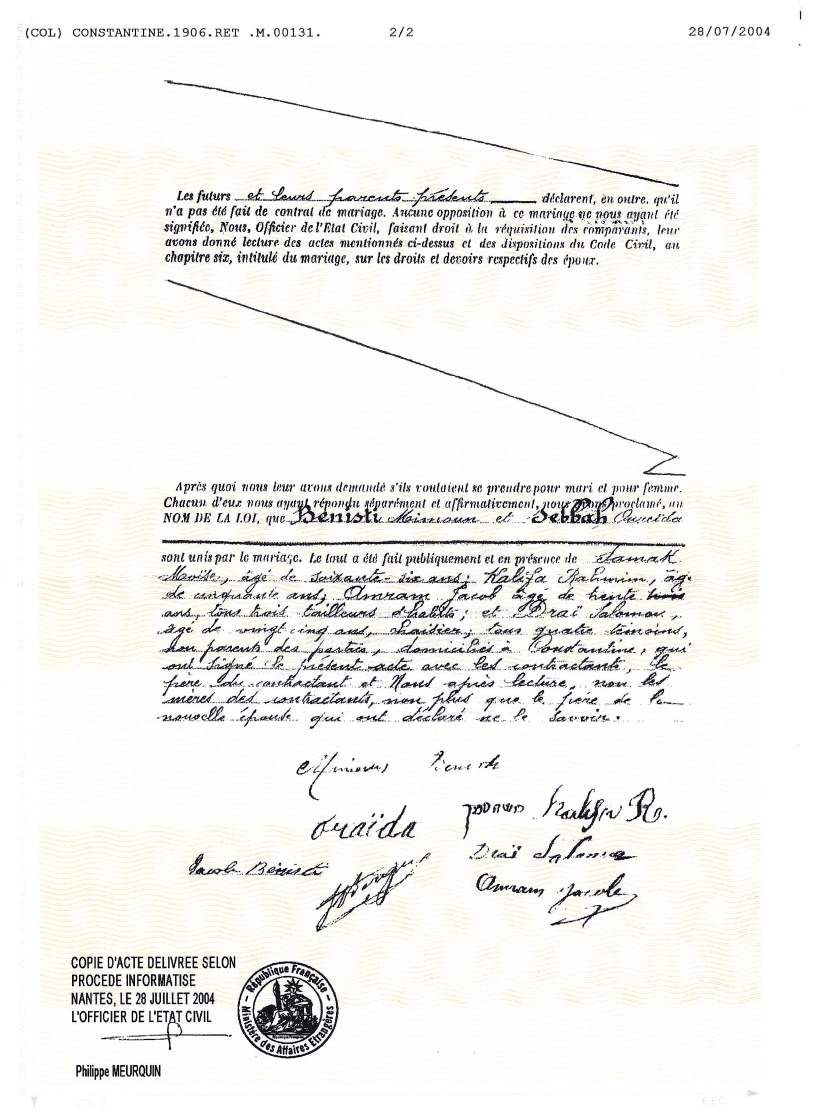 (COL) CONSTANTINE.1906.RET .M.00131. 2/2 28/07/2004
Les futurs et leurs parents présents déclarent, en outre, qu'il
n'a pas été fait de contrat de mariage. Aucune opposition à ce mariage ne nous ayant été
signifiée, Nous, Officier de l'Etat Civil, faisant droit à la réquisition des comparants, leur
avons donné lecture des actes mentionnés ci-dessus et des dispositions du Code Civil, au
chapitre six, intitulé du mariage, sur les droits et devoirs respectifs des époux.
Après quoi nous leur avons demandé s'ils voulaient se prendre pour mari et pour femme.
Chacun d'eux nous ayant répondu séparément et affirmativement, nous avons proclamé, au
NOM DE LA LOI, que Bénisti Maimoun et Sebbah Ouraïda
sont unis par le mariage. Le tout a été fait publiquement et en présence de Samak
Moïse, âgé de soixante-six ans; Kalifa Rahmim, âgé
de cinquante ans; Amram Jacob âgé de trente trois
ans, tous trois tailleurs d'habits; et Draï Salomon,
âgé de vingt cinq ans, chaisier; tous quatre témoins,
non parents des parties, domiciliés à Constantine, qui
ont signé le présent acte avec les contractants, le
père du contractant et Nous après lecture, non les
mères des contractants, non plus que le père de la
nouvelle épouse qui ont déclaré ne le savoir.
Maimoun Benisti
Ouraïda
Kalifa Ra.
Jacob Bénisti
Draï Salomon
Amram Jacob
COPIE D'ACTE DELIVREE SELON
PROCEDE INFORMATISE
NANTES, LE 28 JUILLET 2004
L'OFFICIER DE L'ETAT CIVIL
République Française
Ministère des Affaires Etrangères
Philippe MEURQUIN